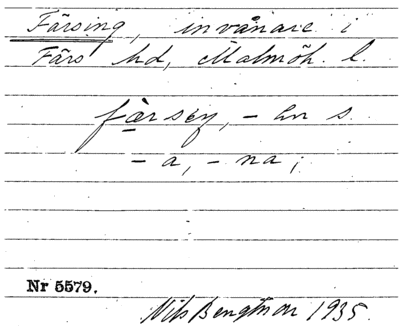 Färsing, invånare i
Färs hd, Malmöh. l.
færsey, - en s.
- a, - na;
Nr 5579.
Nils Bengtsson 1935.